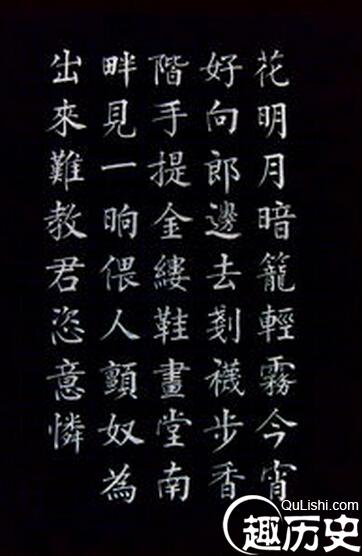 花明月暗籠輕霧今宵
好向郎邊去剗襪步香
階手提金縷鞋畫堂南
畔見一晌偎人顫奴為
出來難教君恣意憐
QuLishi.com
趣历史